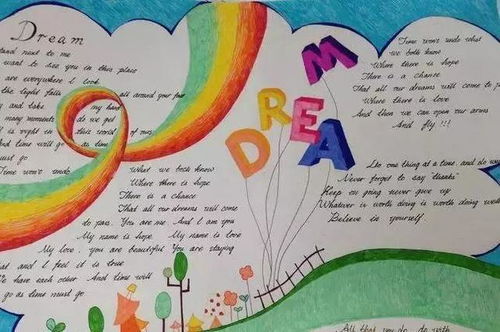 Dream
stand next to me
want to see you in this place
are everywhere I look
the light falls all around your face
and take my hand
many moments do we get
is right in this world of ours
And time will go as time
must go
Time won't undo
What we both know
Where there is hope
There is a chance
That all our dreams will come
to pass. You are me And I am you
My name is hope My name is love
My love, you are beautiful You are staying
and I feel it is true
We have each other And time will
go as time must go
DREAM
Time won't undo what
we both know
Where there is hope
There is a chance
That all our dreams will come to
Where there is love
And then we can open our arms
And fly !!!
Do one thing at a time, and do we
Never forget to say "thanks"
Keep on going never give up
Whatever is worth doing is worth doing well
Believe in yourself.
All that you do, do with